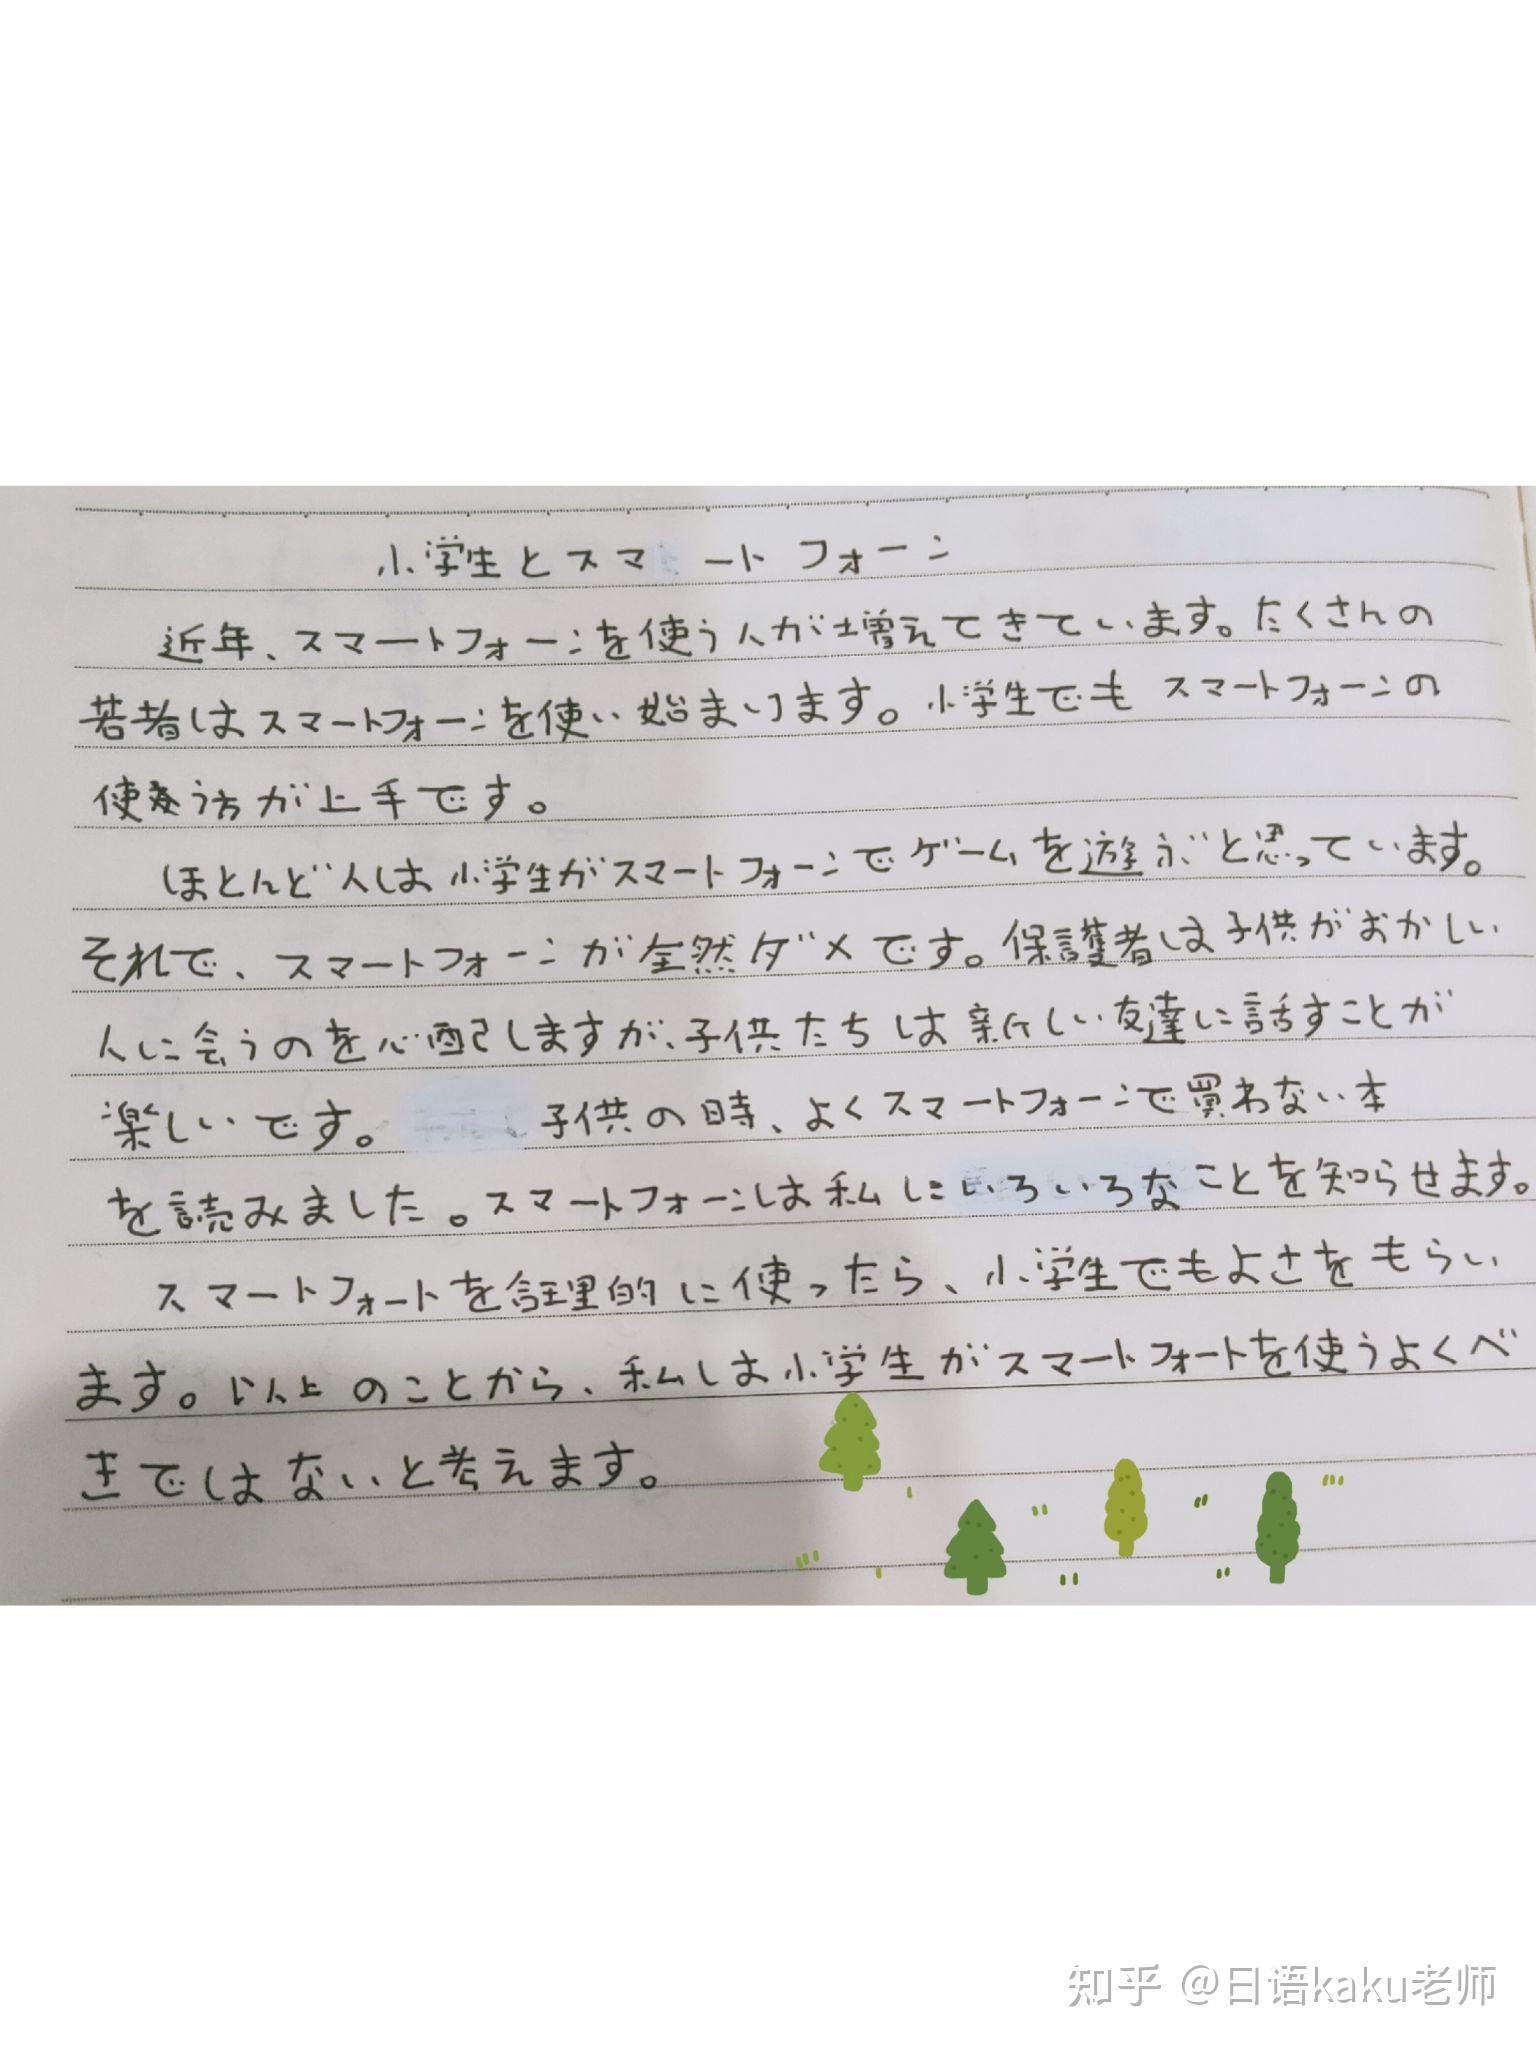 小学生とスマートフォーン
近年、スマートフォーンを使う人が増えてきています。たくさんの
若者はスマートフォーンを使い始まります。小学生でもスマートフォーンの
使う方が上手です。
ほとんど人は小学生がスマートフォーンでゲームを遊ぶと思っています。
それで、スマートフォーンが全然ダメです。保護者は子供がおかしい
人に会うのを心配しますが、子供たちは新しい友達に話すことが
楽しいです。子供の時、よくスマートフォーンで買わない本
を読みました。スマートフォーンは私にいろいろなことを知らせます。
スマートフォートを理的に使ったら、小学生でもよさをもらい
ます。以上のことから、私は小学生がスマートフォートを使うよくべ
きではないと考えます。
知乎 @日语kaku老师